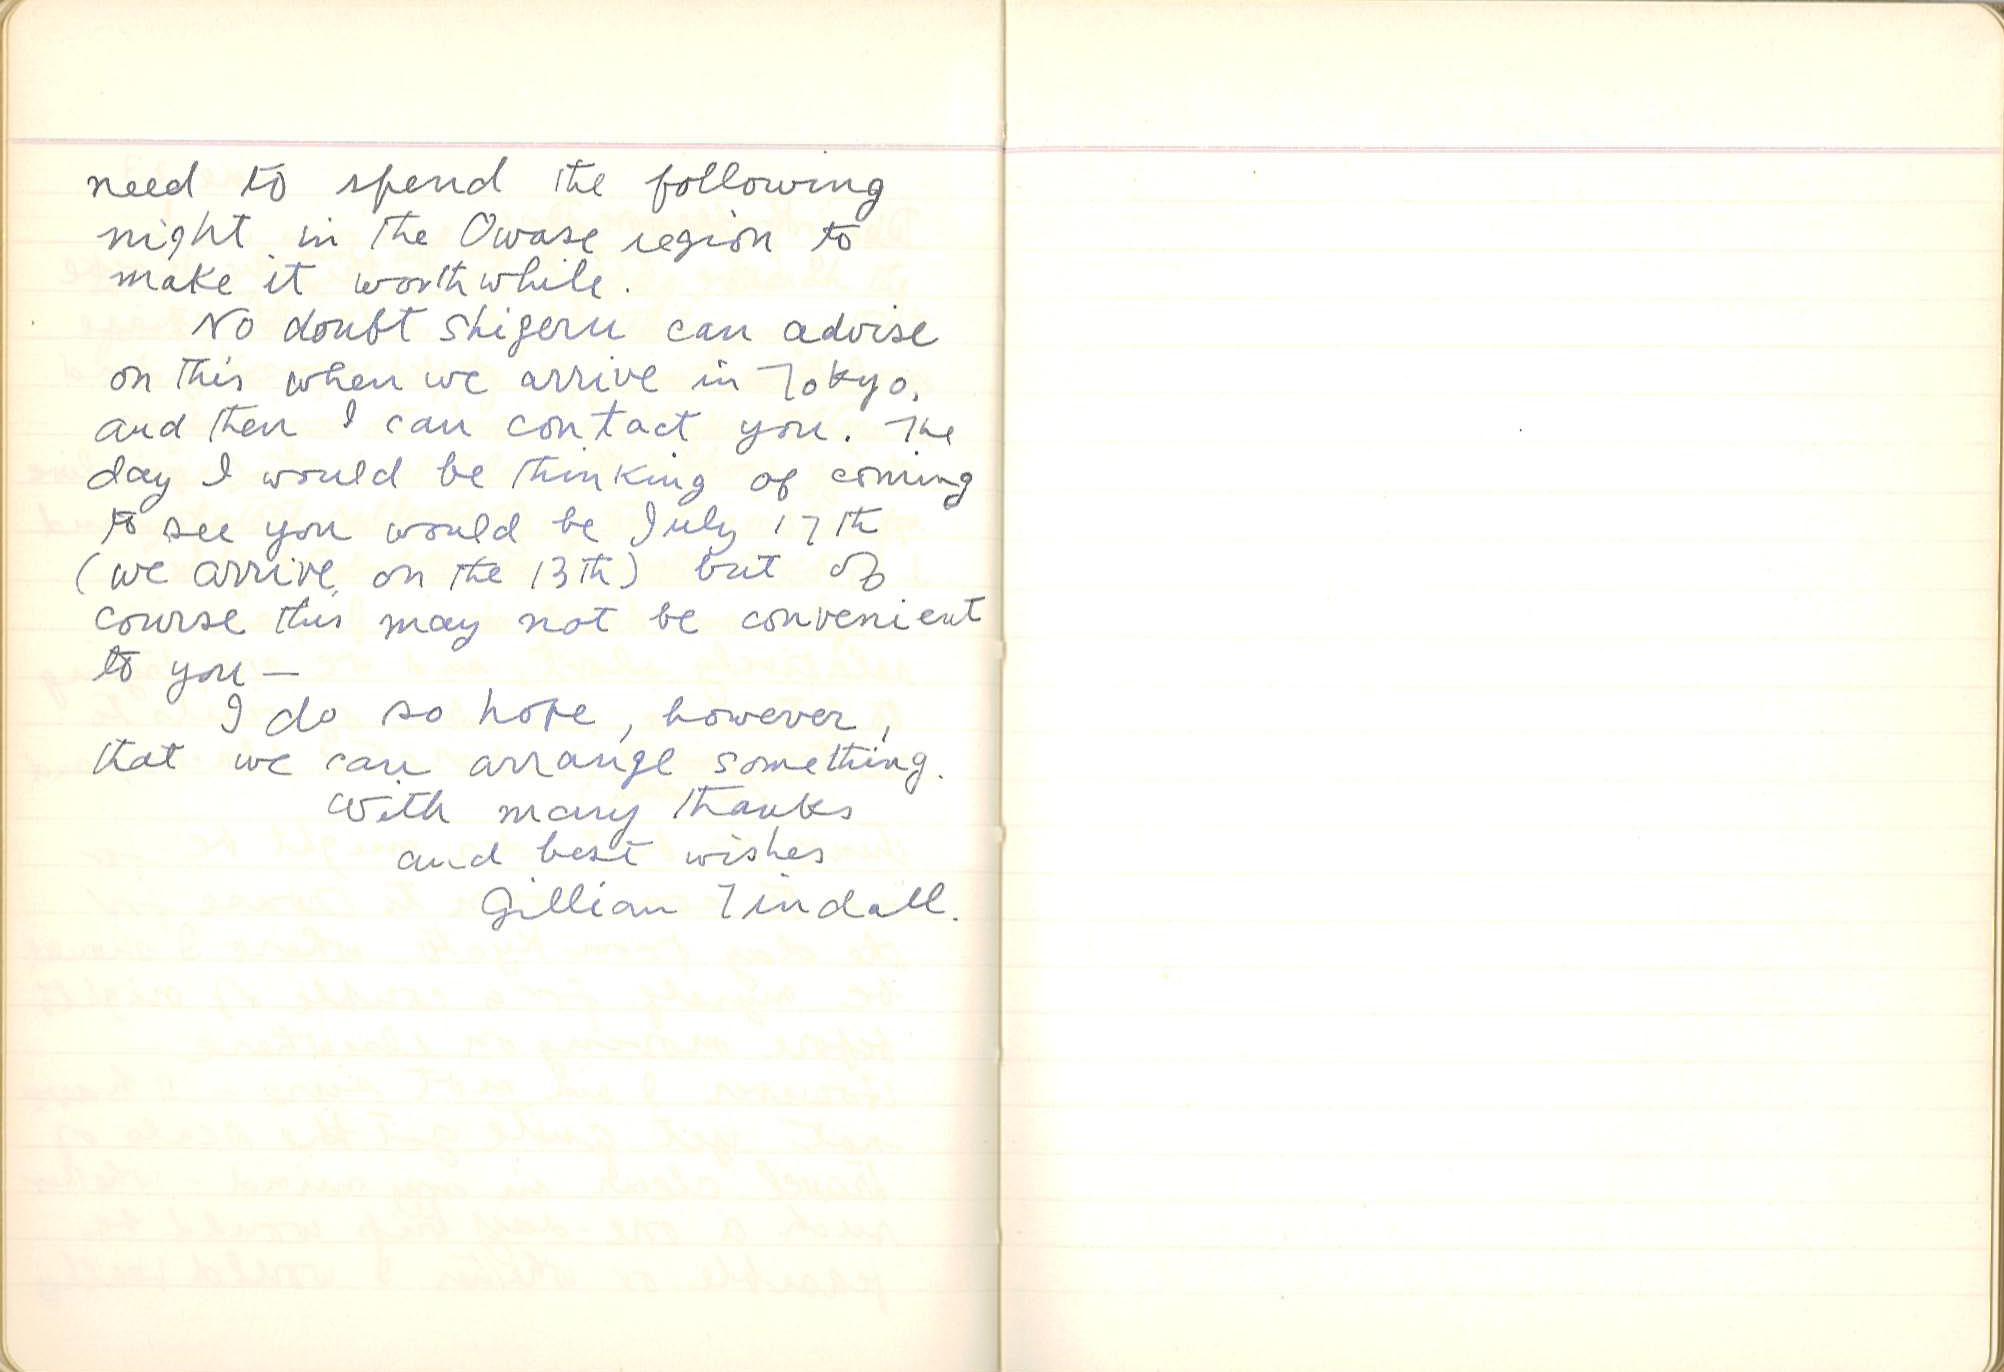 need to spend the following
night in the Owase region to
make it worthwhile.
No doubt Shigeru can advise
on this when we arrive in Tokyo,
and then I can contact you. The
day I would be thinking of coming
to see you would be July 17th
(we arrive on the 13th) but of
course this may not be convenient
to you —
I do so hope, however,
that we can arrange something.
With many thanks
and best wishes
Gillian Tindall.